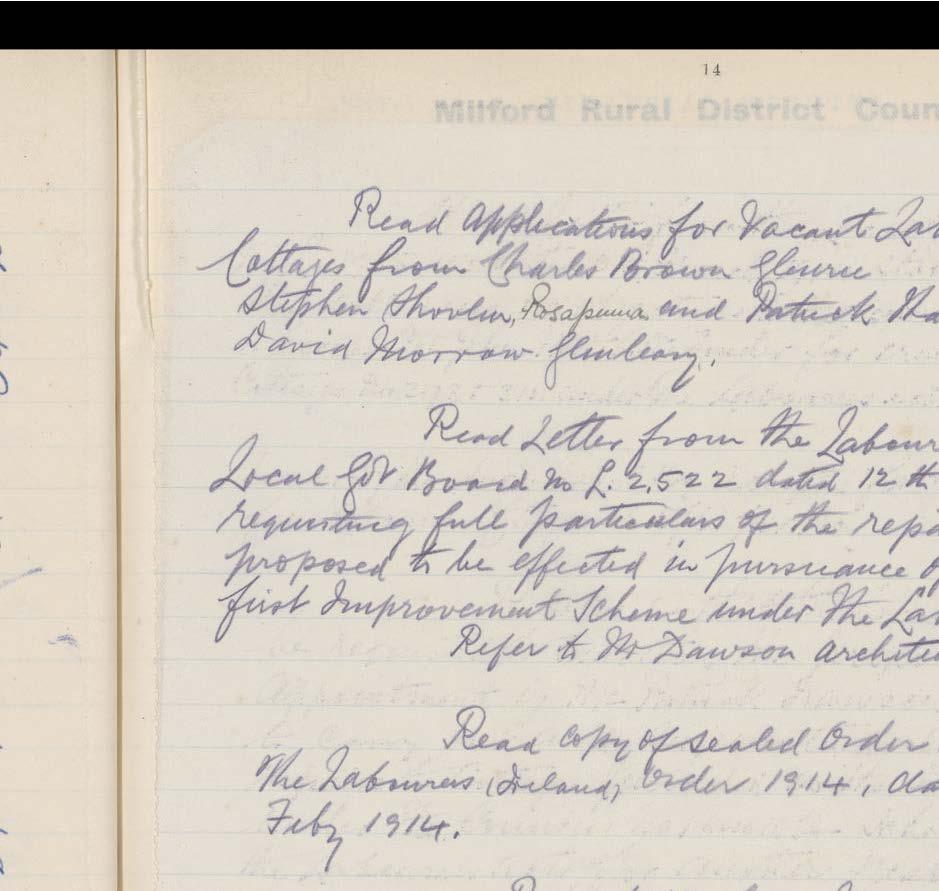 14
Milford Rural District Coun
Read Applications for Vacant Lab
Cottages from Charles Brown
Stephen Shovlin, Rosapenna and Patrick
David Morrow Glenleary.
Read Letter from the Labour
Local Govt Board No L. 2,522 dated 12th
requesting full particulars of the repa
proposed to be effected in pursuance of
first Improvement Scheme under the Lab
Refer to Mr Dawson Archite
Read copy of sealed Order
The Labourers (Ireland) Order 1914, da
Feby 1914.